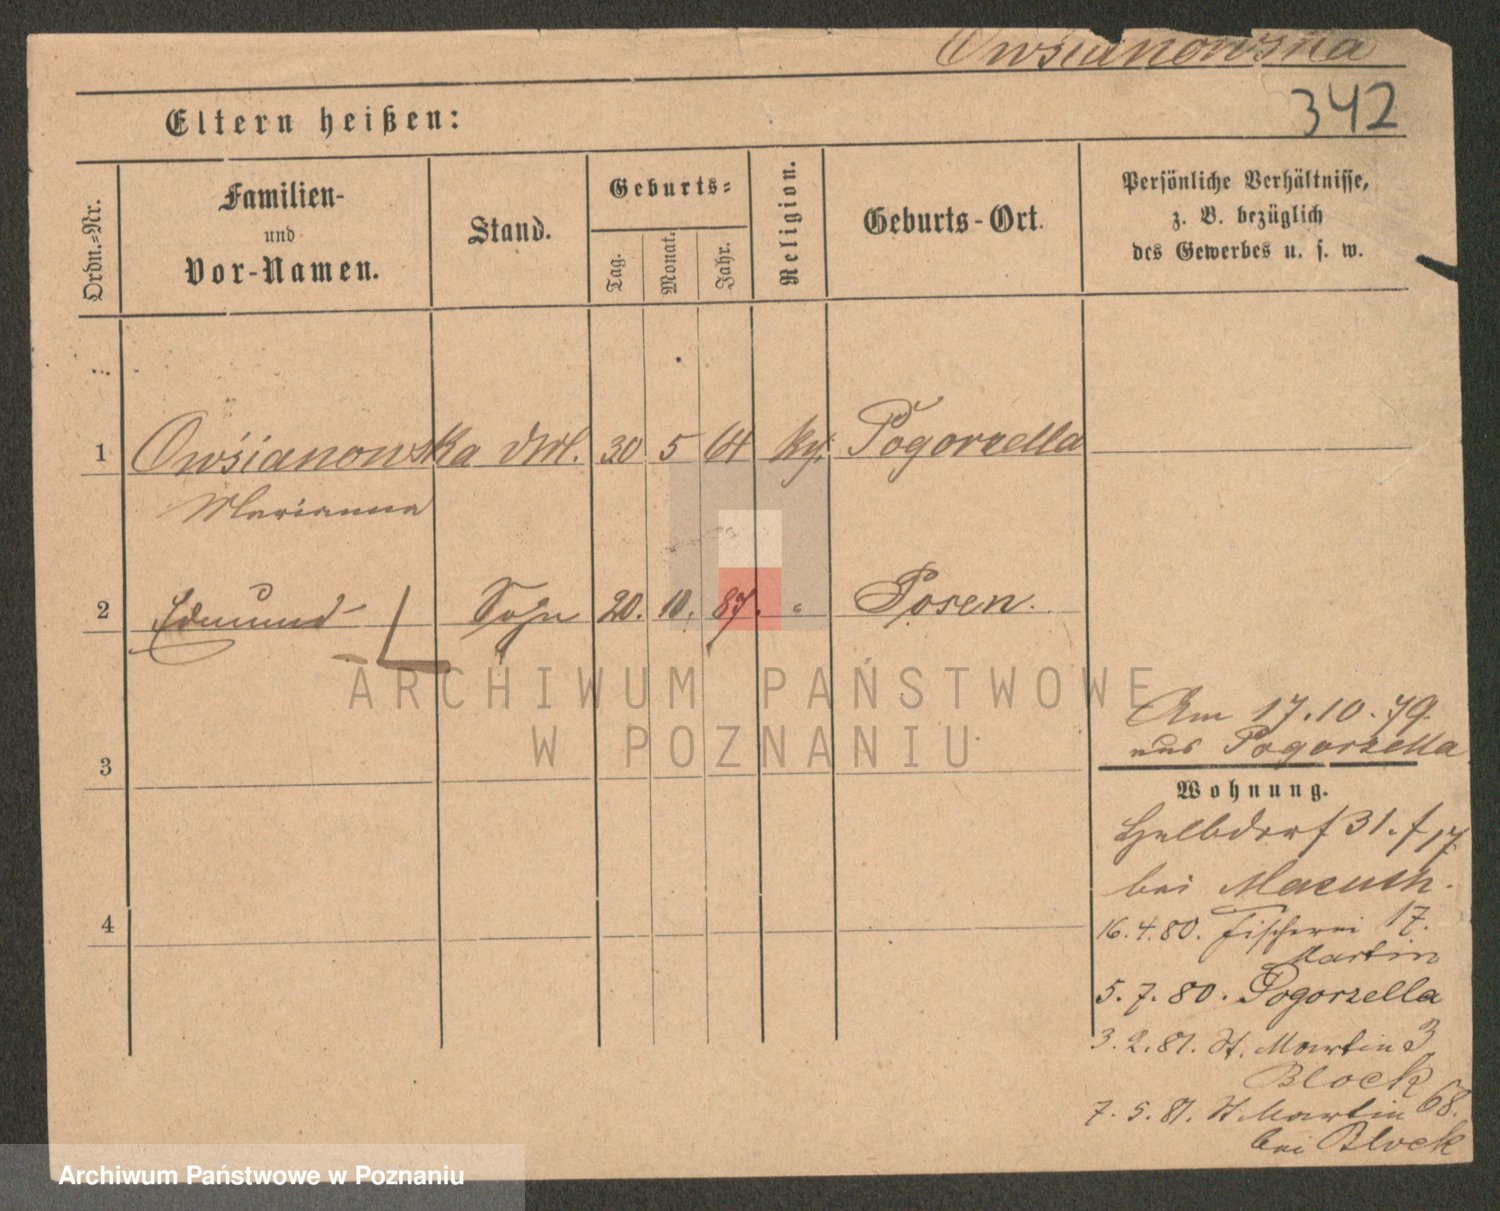 Owsianowska
342
Eltern heißen:
Ordn.=Nr.
Familien-
und
Vor-Namen.
Stand.
Geburts=
Tag.
Monat.
Jahr.
Religion.
Geburts-Ort.
Persönliche Verhältnisse,
z. B. bezüglich
des Gewerbes u. s. w.
1 Owśianowska 30 5 64 Pogorzella
Marianna
2 Edmund Sohn 20. 10. 87. " Posen.
3
4
Am 17.10.79
aus Pogorzella
Wohnung.
Halbdorf 31. f 17
bei
16.4.80. Fischerei 17.
Martin
5.7.80. Pogorzella
3.2.81. St. Martin 3
Block
7.5.81. St Martin 68.
bei Block
ARCHIWUM PAŃSTWOWE
W POZNANIU
Archiwum Państwowe w Poznaniu